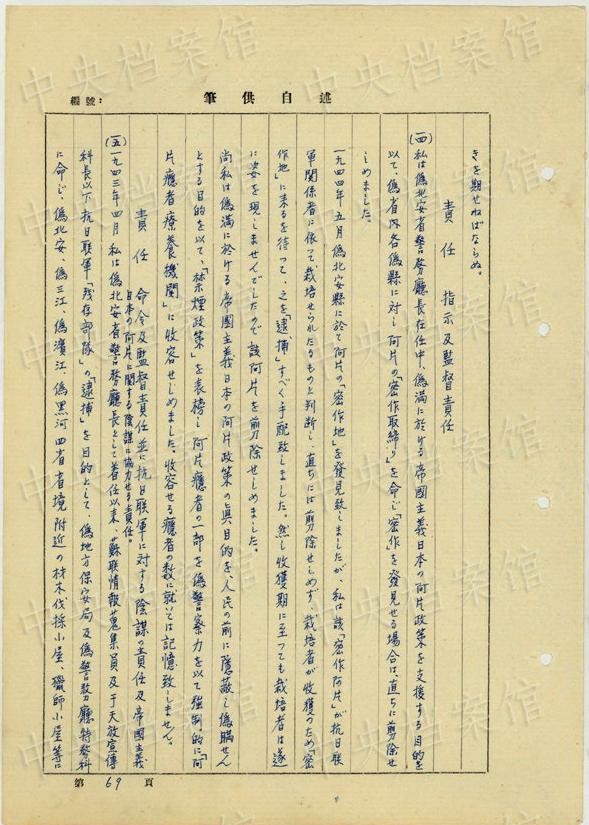 編號：
述自供筆
きを期せねばならぬ。
責任　指示及監督責任
(四)私は偽北安省警務廳長在任中、偽満に於ける帝國主義日本の阿片政策を支援する目的を
以て、偽省内各偽縣に対し阿片の「密作取締り」を命じ「密作」を發見せる場合は、直ちに剪除せ
しめました。
一九四四年五月偽北安縣に於て阿片の「密作地」を發見致しましたが、私は該「密作阿片」が抗日联
軍関係者に依って栽培せられたるものと判断し、直ちには剪除せしめず、栽培者が收獲のため「密
作地」に来るを待って、之を「逮捕」すべく手配致しました。然し收獲期に至っても栽培者は遂
に姿を現しませんでしたので該阿片を剪除せしめました。
尚私は偽満に於ける帝國主義日本の阿片政策の眞目的を、人民の前に隠蔽し偽瞞せん
とする目的を以て、「禁煙政策」を表榜し阿片癮者の一部を偽警察力を以て強制的に「阿
片癮者療養機関」に收容せしめました。收容せる癮者の数に就ては記憶致しません。
責任　命令及監督責任並に抗日联軍に対する陰謀の責任及帝國主義
日本の阿片に関する陰謀に協力せる責任。
(五)一九四三年四月私は偽北安省警務廳長として着任以来、蘇联情報蒐集員及于天放宣傳
科長以下抗日联軍「残存部隊」の「逮捕」を目的として、偽地方保安局及偽警務廳特務科
に命じ、偽北安、偽三江、偽濱江、偽黒河四省省境附近の材木伐採小屋、獵師小屋等に
第 69 頁
中央档案馆